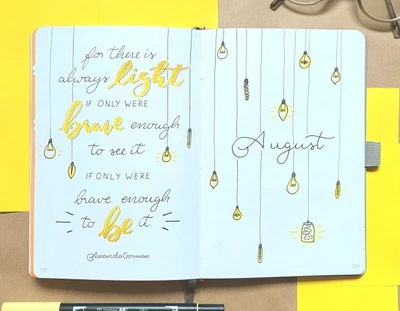 for there is
always light
IF ONLY WE'RE
brave enough
to see it
IF ONLY WE'RE
brave enough
to be it
Amanda Gorman
August